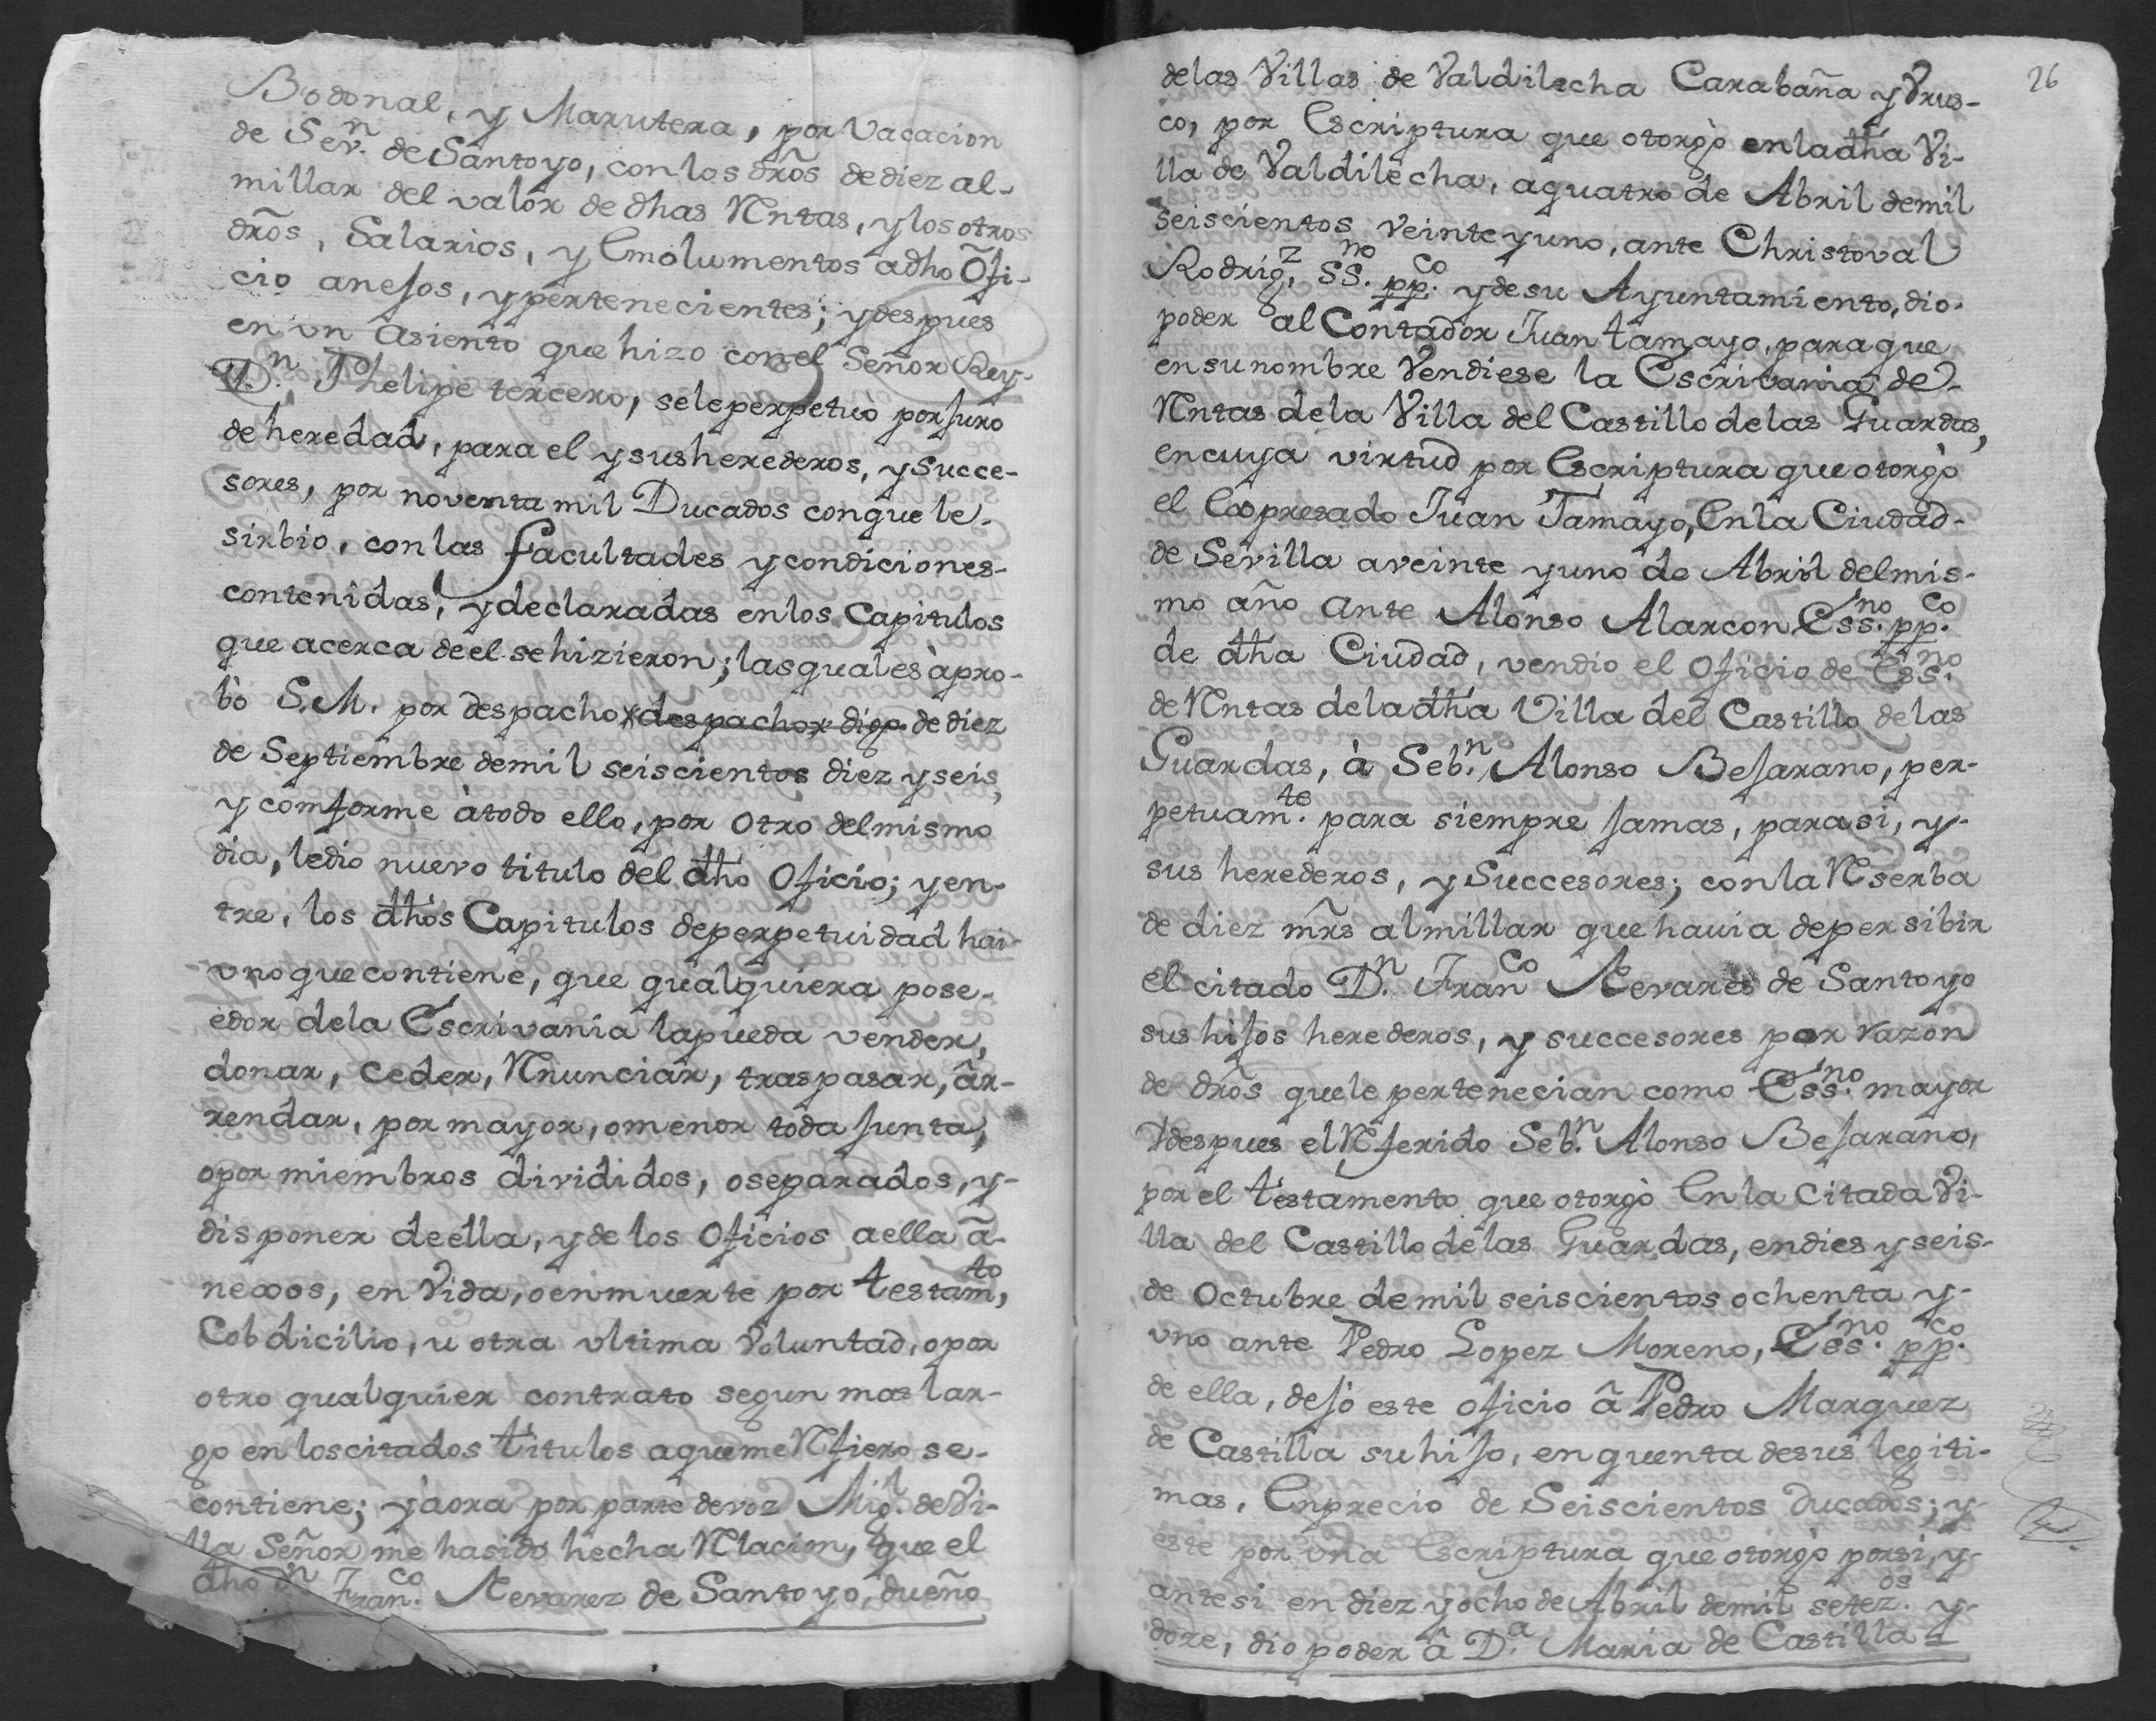 Bodonal, y Marutera, por Vacacion
de Sevn. de Santoyo, con los dr̃os de diez al-
millar del valor de dhas Rntas, y los otros
dr̃os, Salarios, y Emolumentos adho Ofi-
cio anejos, y pertenecientes; y despues
en vn Asiento que hizo con el Señor Rey-
Dn. Phelipe tercero, sele perpetuò por juro
de heredad, para el y sus herederos, y Succe-
sores, por noventa mil Ducados con que le-
sirbio, con las facultades y condiciones-
contenidas, y declaradas en los Capitulos
que acerca de el se hizieron; las quales àpro-
bò S.M. por despacho x despachox digo de diez
de Septiembre de mil seiscientos diez y seis,
y comforme àtodo ello, por otro del mismo
dia, ledio nuevo titulo del dho Oficio; y en-
tre, los dhos Capitulos de perpetuidad hai-
vno que contiene, que qualquiera pose-
edor dela Escrivania la pueda vender,
donar, Ceder, Rnunciar, traspasar, âr-
rendar, por mayor, omenor toda junta,
opor miembros divididos, oseparados, y-
disponer de ella, y de los Oficios aella ã-
nexos, en Vida, o enmuerte por testamto,
Cobdicilio, u otra vltima Voluntad, o por
otro qualquier contrato segun mas lar-
go en los citados titulos aqueme Rfiero se-
contiene; y àora por parte de voz Migl. de Vi-
lla Señor me hasido hecha Rlacion, que el
dho Dn Franco. Nevarez de Santoyo, dueño
26
delas Villas de Valdilecha Carabaña y Vrus-
co, por Escriptura que otorgò enladha Vi-
lla de Valdilecha, aquatro de Abril demil
seiscientos veinte y uno, ante Christoval
Rodrigz, SSno. ppco. y desu Ayuntamiento, dio-
poder al Contador Juan tamayo, para que
en su nombre Vendiese la Escrivania de-
Rntas dela Villa del Castillo delas Guardas,
en cuya virtud por Escriptura que otorgò
el Expresado Juan Tamayo, Enla Ciudad-
de Sevilla aveinte y uno de Abril delmis-
mo año ante Alonso Alarcon Essno. ppco.
de dha Ciudad, vendio el Oficio de Essno.
de Rntas deladha Villa del Castillo delas
Guardas, à Sebn. Alonso Bejarano, per-
petuamte. para siempre jamas, para si, y-
sus herederos, y Succesores; con la Rserba
de diez mr̃s almillar que havia de persibir
el citado Dn. Franco Nevares de Santoyo
sus hijos herederos, y succesores por razon
de dr̃os quele pertenecian como Essno. mayor
Ydespues el Rferido Sebn. Alonso Bejarano,
por el testamento que otorgò En la Citada Vi-
lla del Castillo delas Guardas, endies y seis-
de Octubre de mil seiscientos ochenta y-
vno ante Pedro Lopez Moreno, Essno. ppco.
de ella, dejò este oficio â Pedro Marquez
de Castilla su hijo, en quenta desus legiti-
mas, Enprecio de Seiscientos Ducados; y-
este por vna Escriptura que otorgò por si, y-
ante si en diez y ocho de Abril demil setezos. y-
doze, dio poder â Da. Maria de Castilla